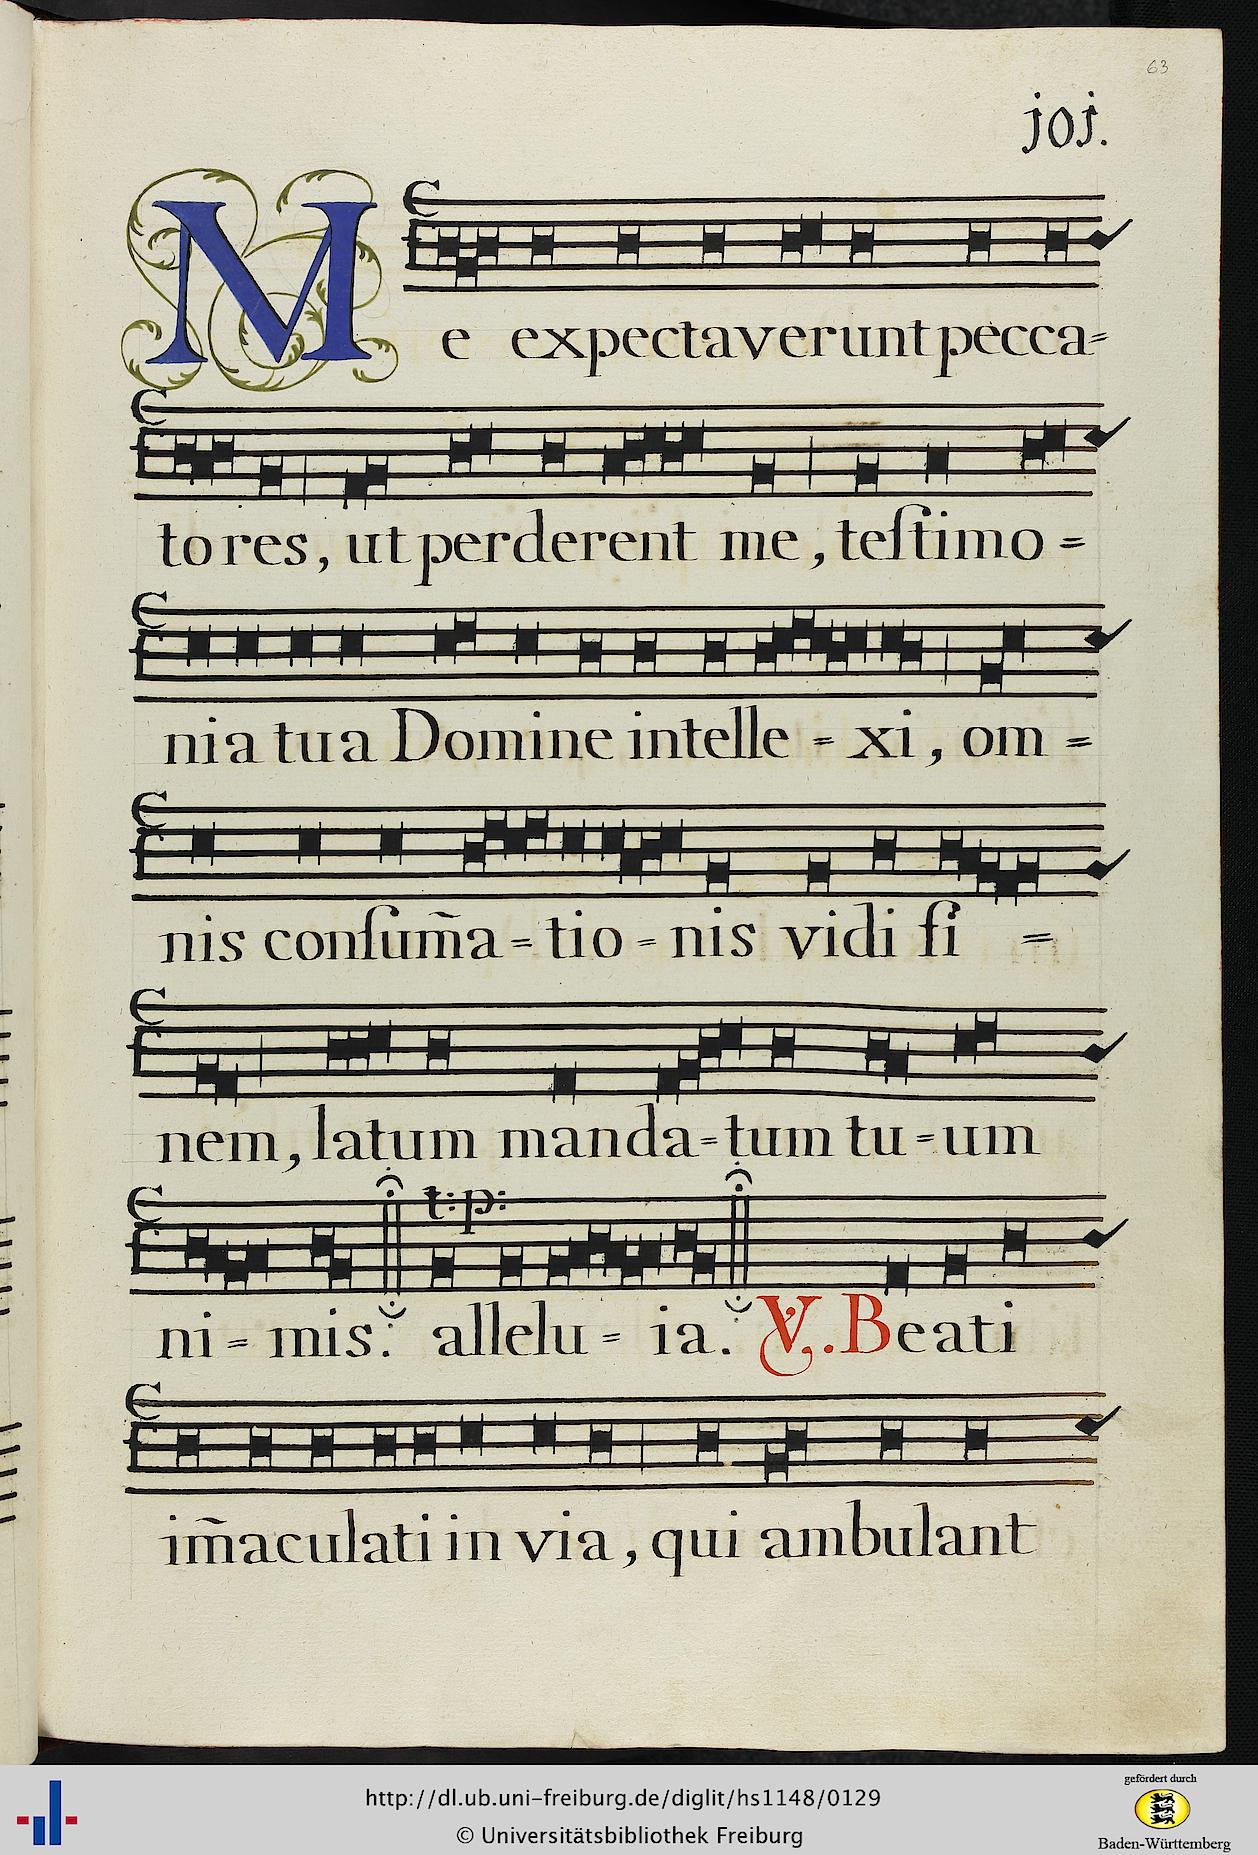 63
joj.
Me expectaverunt pecca=
tores, ut perderent me, teſtimo=
nia tua Domine intelle=xi, om=
nis conſum̃a=tio=nis vidi fi =
nem, latum manda=tum tu=um
t: p:
ni=mis. allelu=ia. V. Beati
im̃aculati in via, qui ambulant
http://dl.ub.uni-freiburg.de/diglit/hs1148/0129
© Universitätsbibliothek Freiburg
gefördert durch
Baden-Württemberg